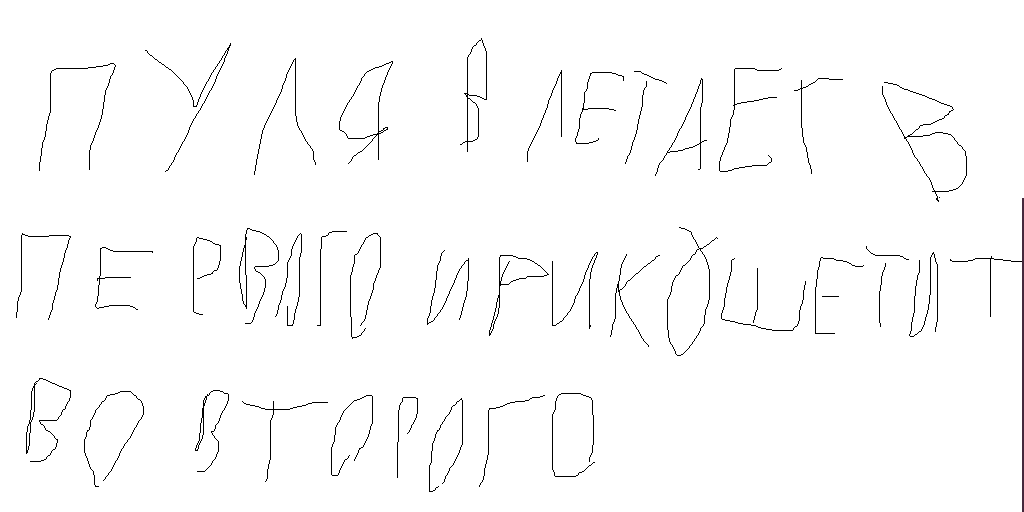 ПУЛЯ ВЛЕТАЕТ В
ПЕРВОГО И РИКОШЕТИТ
ВО ВТОРОГО